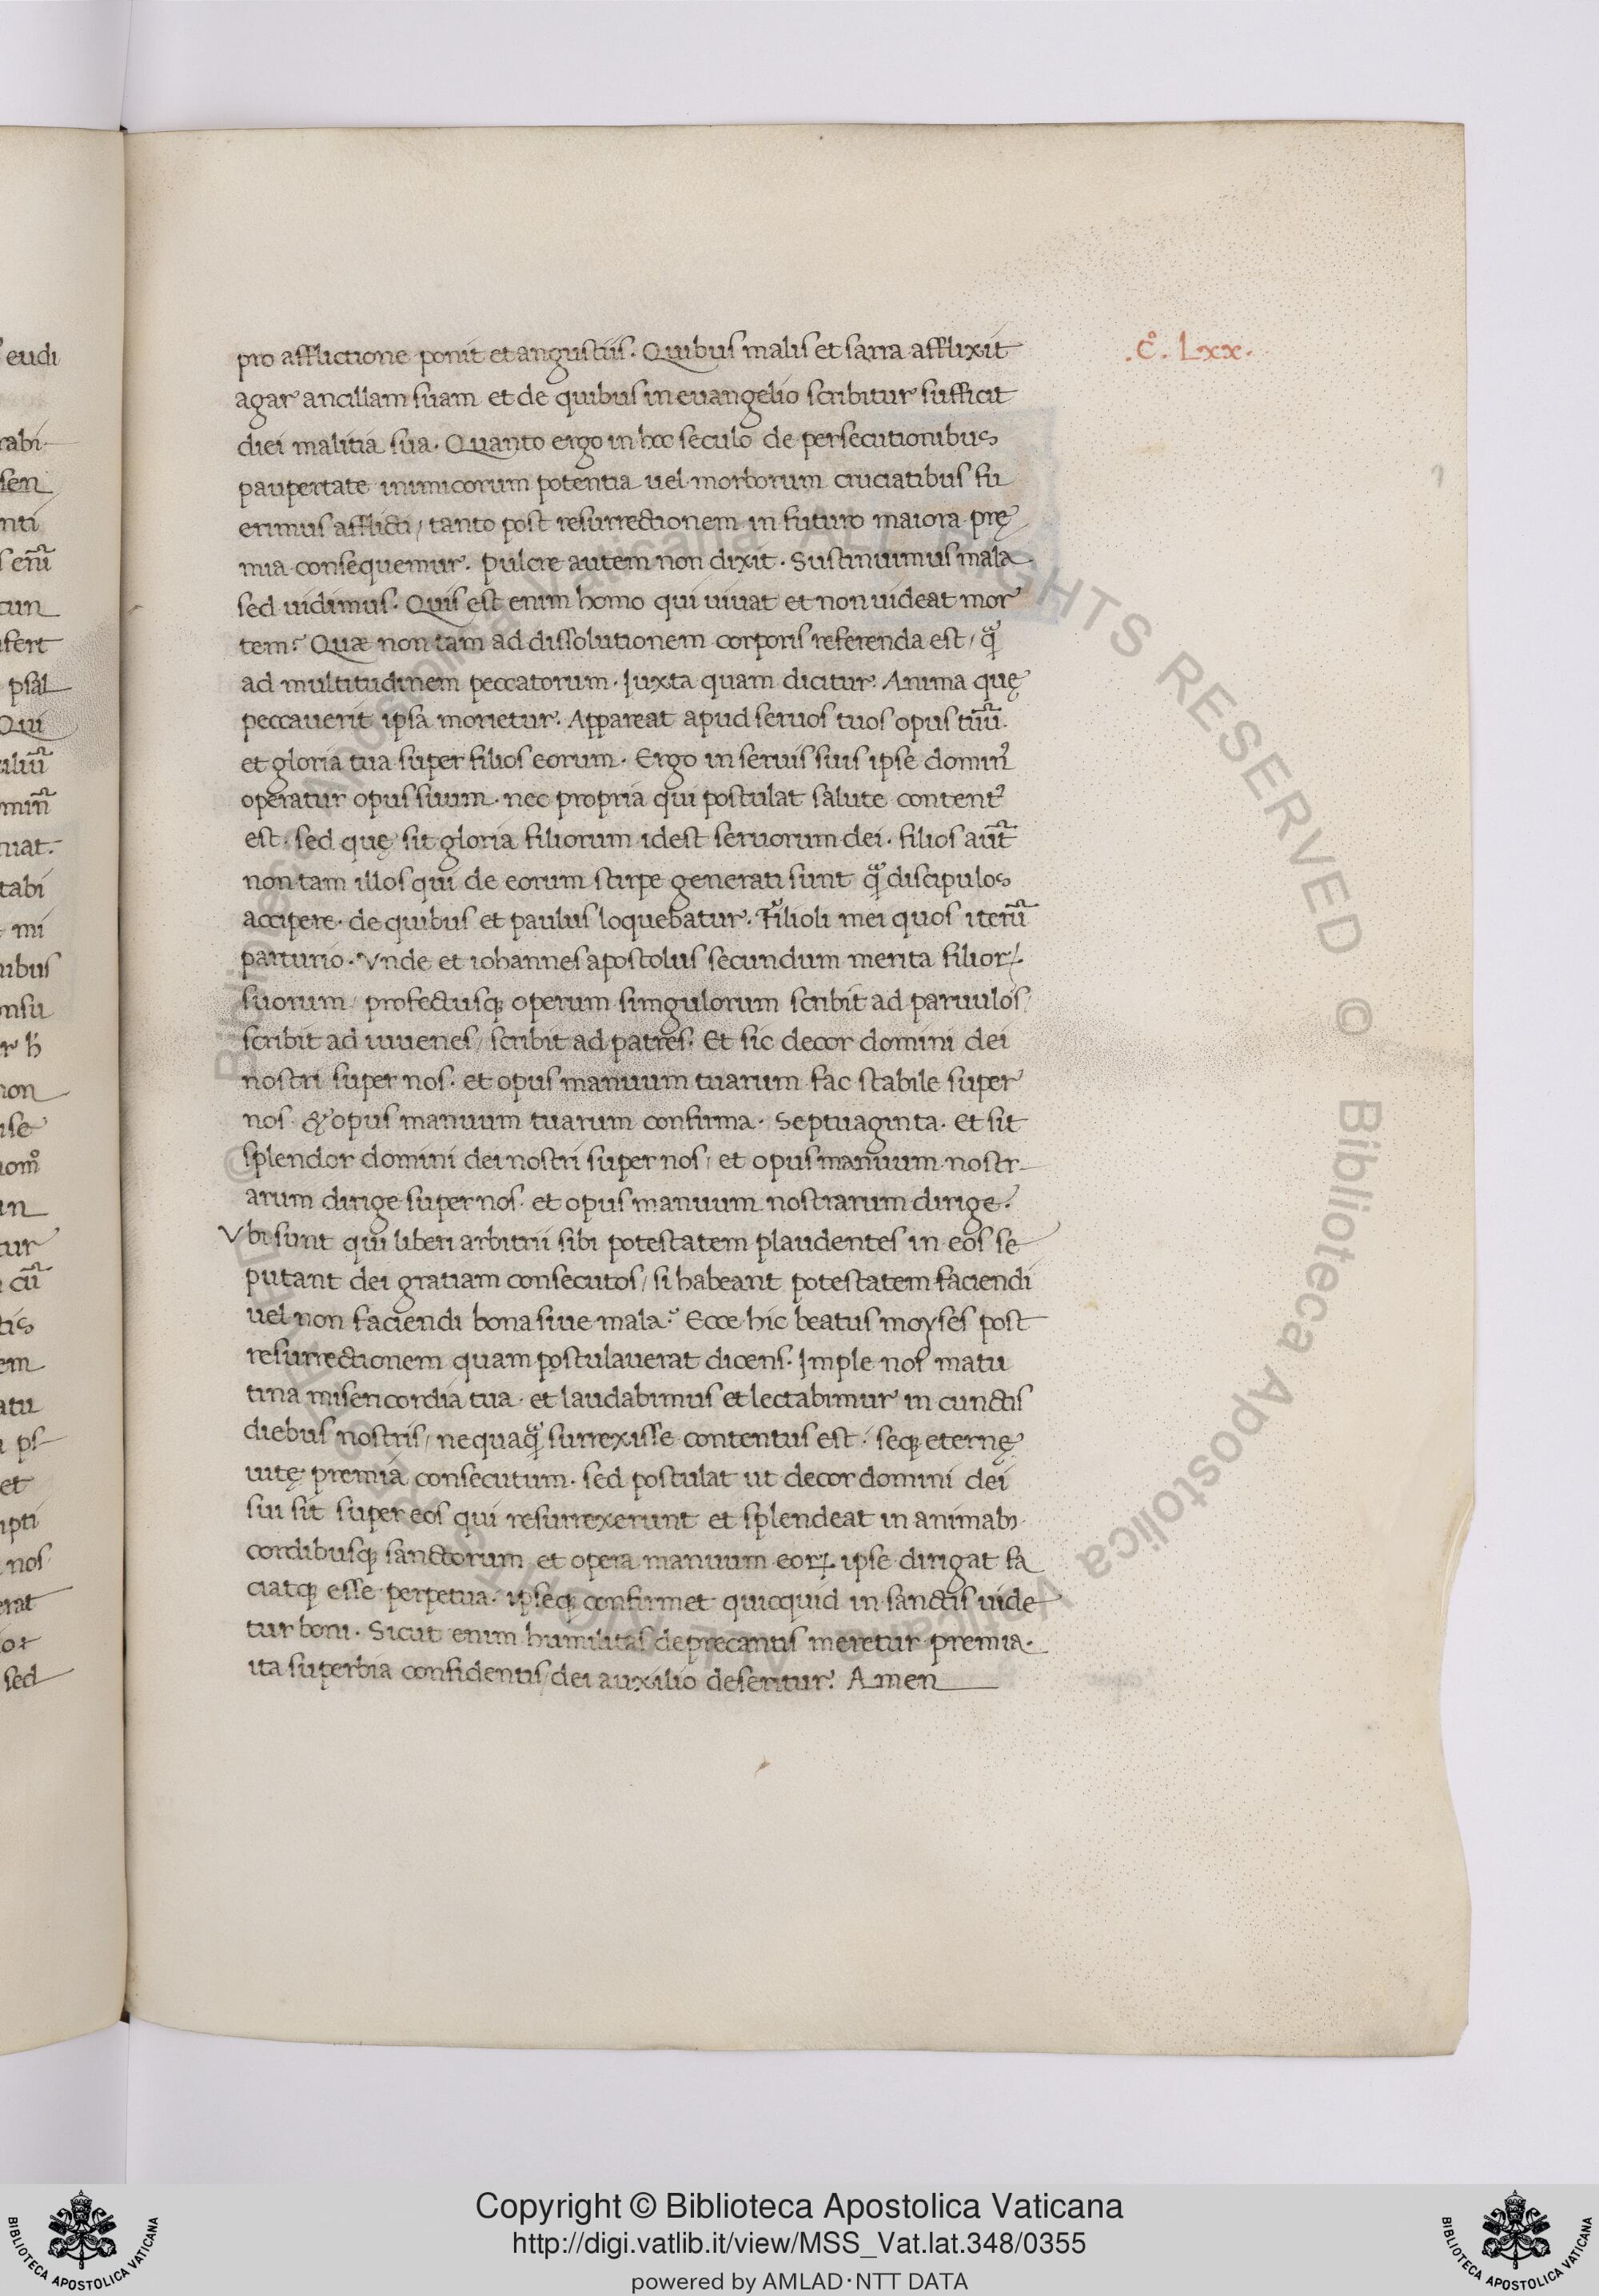 pro afflictione ponit et angustiis. Quibus malis et sarra afflixit
.C̊. Lxx.
agar ancillam suam et de quibus in euangelio scribitur sufficit
diei malitia sua. Quanto ergo in hoc seculo de persecutionibus
paupertate inimicorum potentia uel morborum cruciatibus fu
erimus afflicti/ tanto post resurrectionem in futuro maiora prę
mia consequemur. pulcre autem non dixit. Sustinuimus mala
sed uidimus. Quis est enim homo qui uiuat et non uideat mor
tem? Quæ non tam ad dissolutionem corporis referenda est/ q̃
ad multitudinem peccatorum. Juxta quam dicitur. Anima quę
peccauerit ipsa morietur. Appareat apud seruos tuos opus tuũ.
et gloria tua super filios eorum. Ergo in seruis suis ipse dominꝰ
operatur opus suum. nec propria qui postulat salute contentꝰ
est. sed quę sit gloria filiorum idest seruorum dei. filios aut̃
non tam illos qui de eorum stirpe generati sunt q̃ discipulos
accipere. de quibus et paulus loquebatur. Filioli mei quos iterũ
parturio. Vnde et iohannes apostolus secundum merita filioꝝ.
suorum/ profectusqꝫ operum singulorum scribit ad paruulos/
scribit ad iuuenes/ scribit ad patres. Et sic decor domini dei
nostri super nos. et opus manuum tuarum fac stabile super
nos. & opus manuum tuarum confirma. Septuaginta. Et sit
splendor domini dei nostri super nos/ et opus manuum nostr-
arum dirige super nos. et opus manuum nostrarum dirige.
Vbi sunt qui liberi arbitrii sibi potestatem plaudentes in eos se
putant dei gratiam consecutos/ si habeant potestatem faciendi
uel non faciendi bona siue mala? Ecce hic beatus moyses post
resurrectionem quam postulauerat dicens. Imple nos matu
tina misericordia tua. et laudabimus et lectabimur in cunctis
diebus nostris/ nequaq̃ surrexisse contentus est. seqꝫ eternę
uitę premia consecutum. sed postulat ut decor domini dei
sui sit super eos qui resurrexerunt et splendeat in animabꝫ.
cordibusqꝫ sanctorum et opera manuum eoꝝ. ipse dirigat fa
ciatqꝫ esse perpetua. ipseqꝫ confirmet quicquid in sanctis uide
tur boni. Sicut enim humilitas deprecantis meretur premia.
ita superbia confidentis/ dei auxilio deseritur. Amen
Copyright © Biblioteca Apostolica Vaticana
http://digi.vatlib.it/view/MSS_Vat.lat.348/0355
powered by AMLAD·NTT DATA